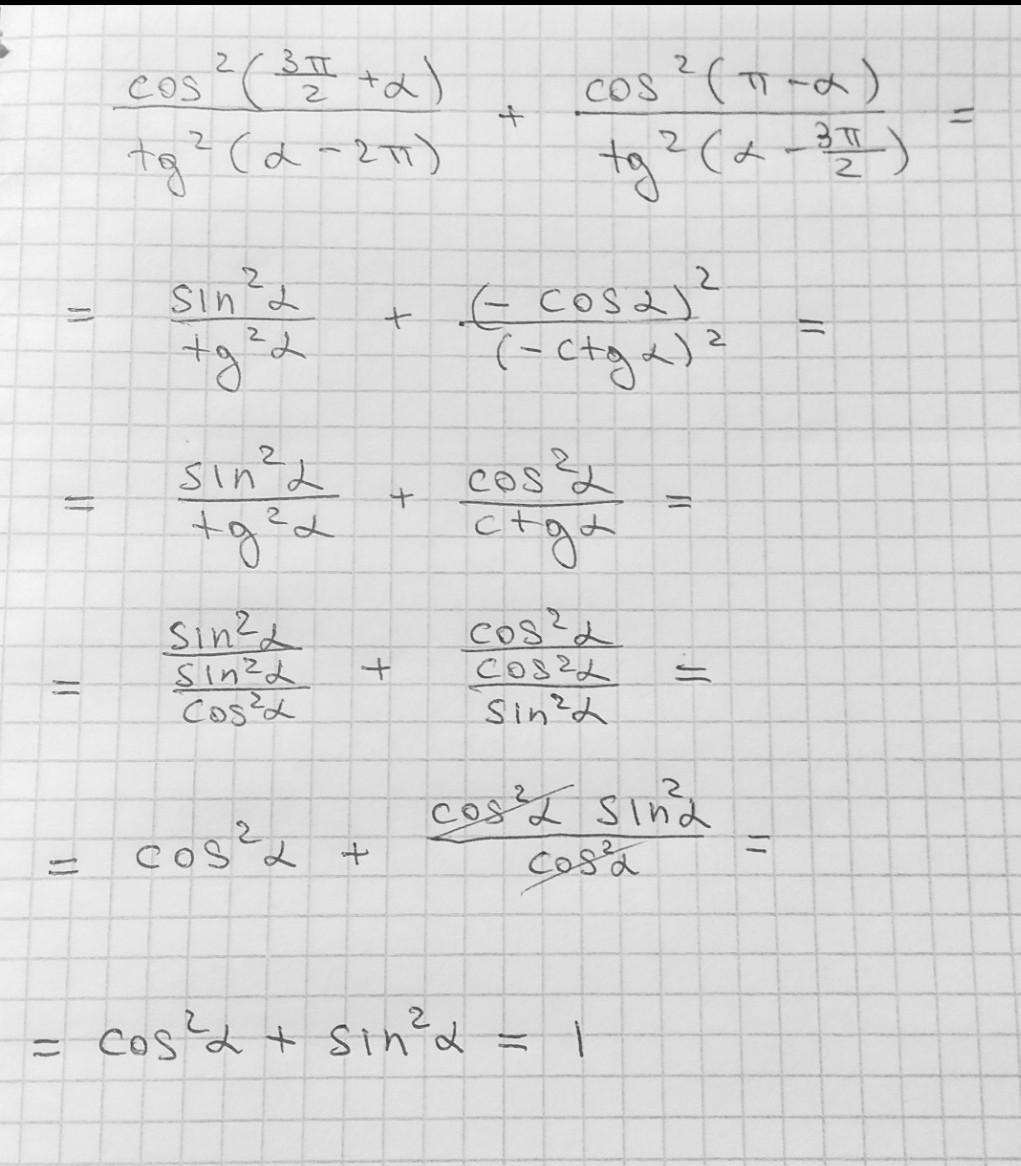 cos²(3π/2 + α) / tg²(α - 2π) + cos²(π - α) / tg²(α - 3π/2) =
= sin²α / tg²α + (- cos α)² / (- ctg α)² =
= sin²α / tg²α + cos²α / ctg α =
= sin²α / (sin²α / cos²α) + cos²α / (cos²α / sin²α) =
= cos²α + cos²α sin²α / cos²α =
= cos²α + sin²α = 1